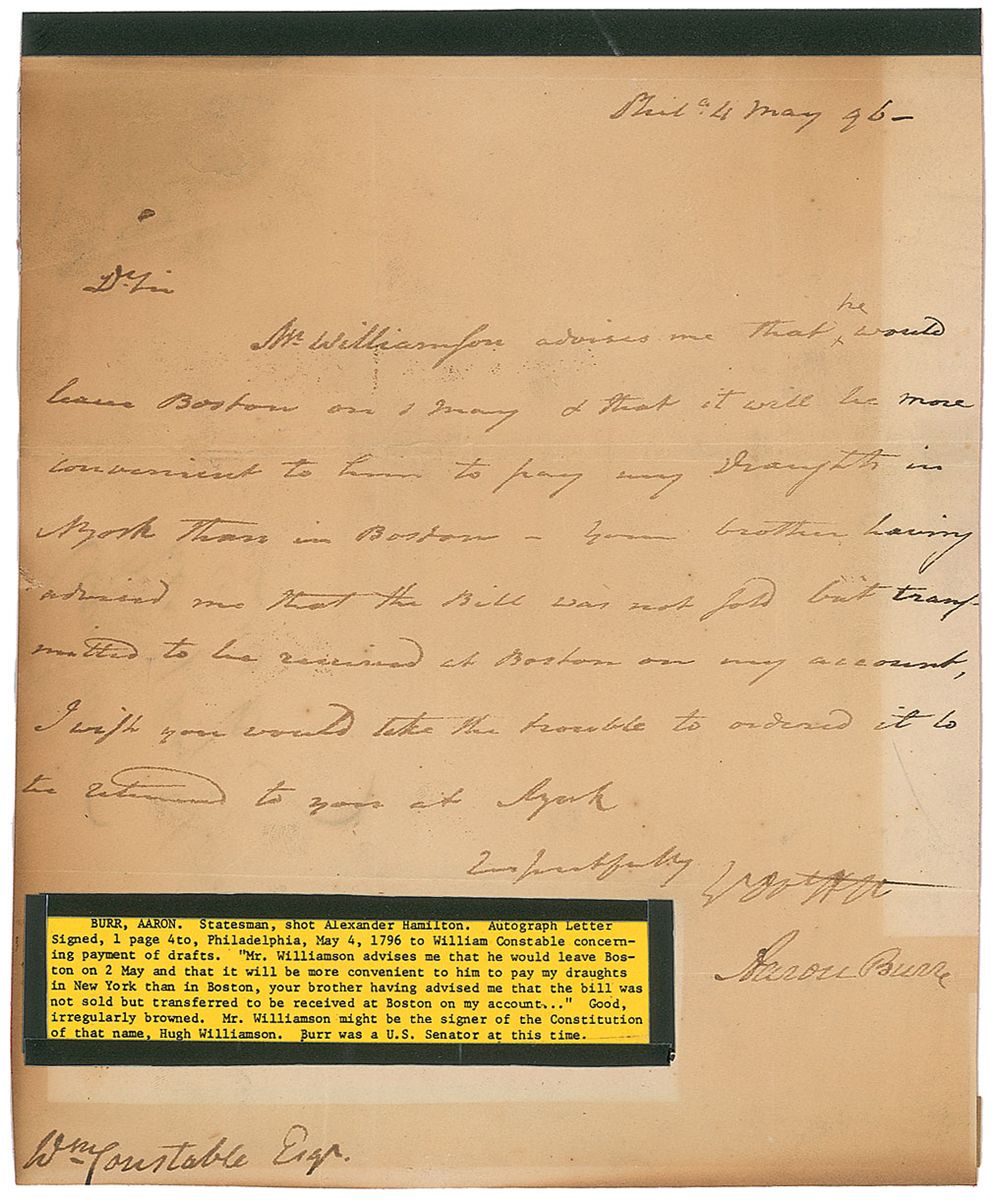 Phila. 4 May 96 –
Dr Sir
Mr Williamson advises me that he would
leave Boston on 1 May & that it will be more
convenient to him to pay my Draughts in
NYork than in Boston – Your brother having
advised me that the Bill was not sold but trans-
mitted to be received at Boston on my account,
I wish you would take the trouble to ordered it to
be returned to you at NYork
respectfully
Aaron Burr
BURR, AARON. Statesman, shot Alexander Hamilton. Autograph Letter
Signed, 1 page 4to, Philadelphia, May 4, 1796 to William Constable concern-
ing payment of drafts. "Mr. Williamson advises me that he would leave Bos-
ton on 2 May and that it will be more convenient to him to pay my draughts
in New York than in Boston, your brother having advised me that the bill was
not sold but transferred to be received at Boston on my account..." Good,
irregularly browned. Mr. Williamson might be the signer of the Constitution
of that name, Hugh Williamson. Burr was a U.S. Senator at this time.
Wm Constable Esqr.